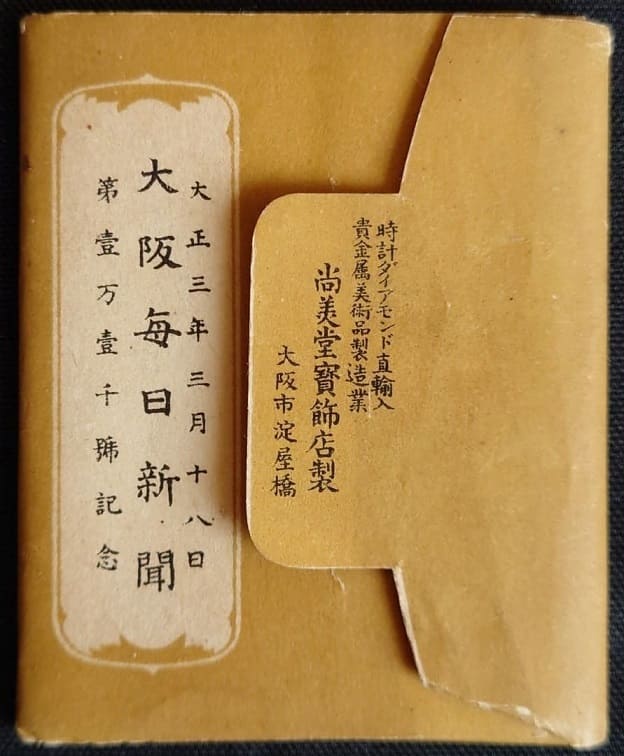 時計ダイアモンド直輸入
貴金属美術品製造業
尚美堂寶飾店製
大阪市淀屋橋
大正三年三月十八日
大阪毎日新聞
第壹万壹千號記念